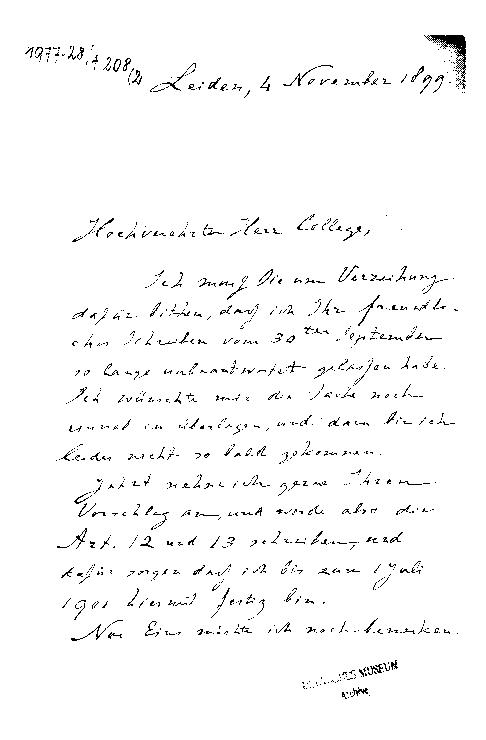 1977-28/A 208/2
Leiden, 4 November 1899.
Hochverehrter Herr College,
Ich muß Sie um Verzeihung
dafür bitten, daß ich Ihr freundli-
ches Schreiben vom 30ten September
so lange unbeantwortet gelassen habe.
Ich wünschte mir die Sache noch
einmal zu überlegen, und dazu bin ich
leider nicht so bald gekommen.
Jetzt nehme ich gerne Ihren
Vorschlag an, und werde also die
Art. 12 und 13 schreiben, und
dafür sorgen daß ich bis zum 1 Juli
1901 hiermit fertig bin.
Nur Eins möchte ich noch bemerken.
MUSEUM
Archiv